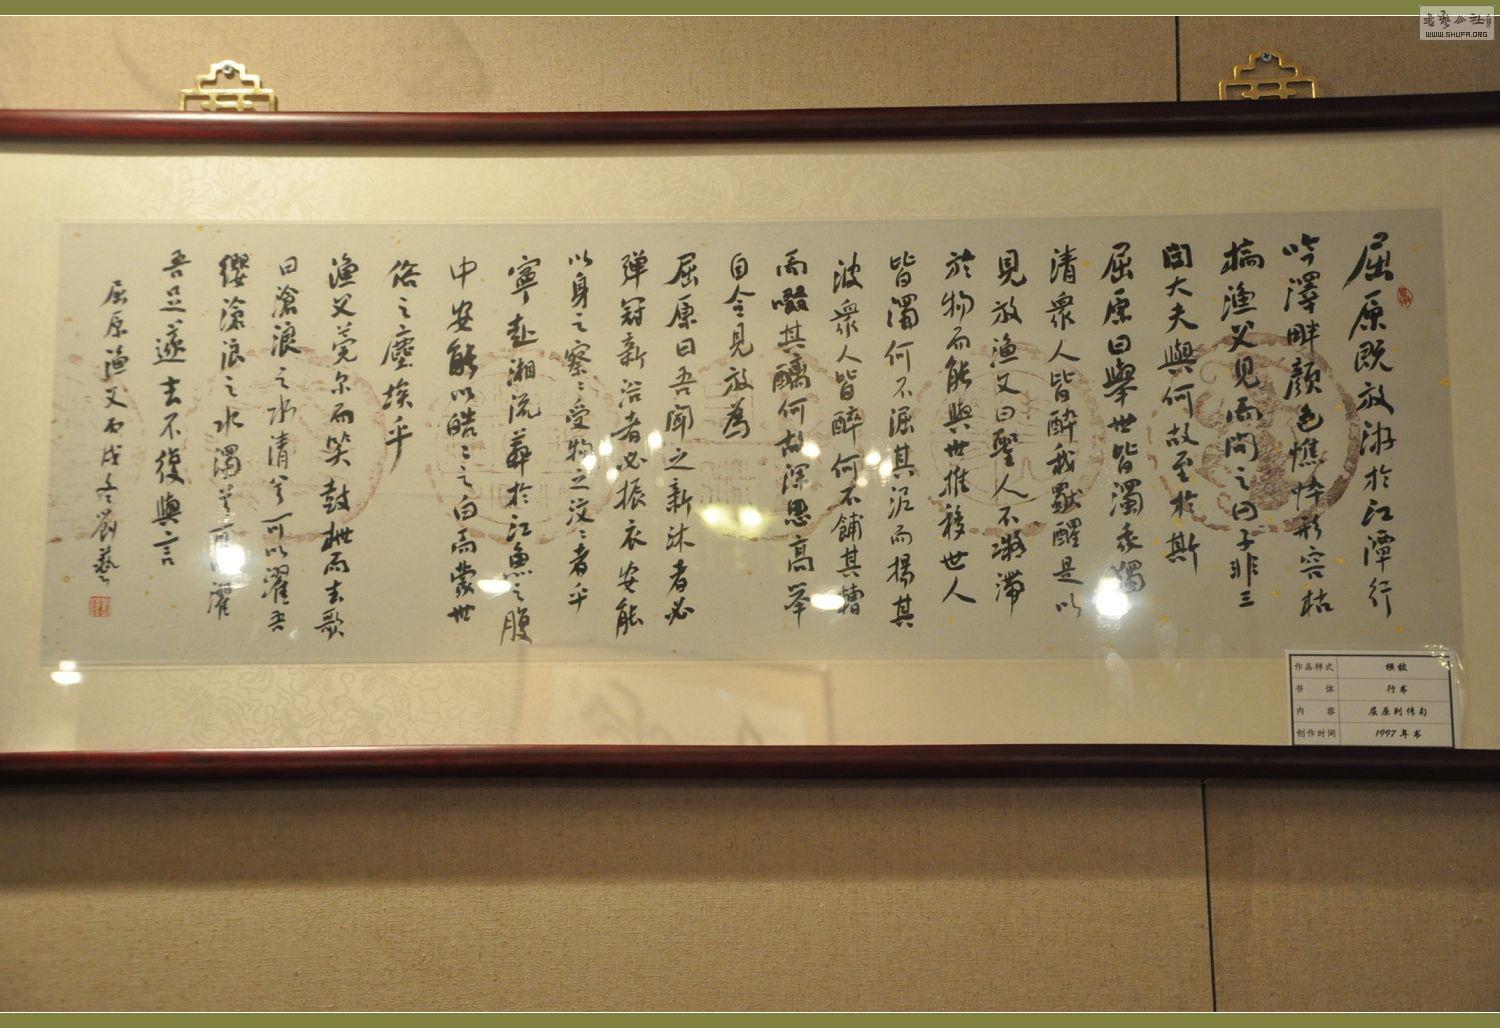 屈原既放游於江潭行
吟澤畔顏色憔悴形容枯
槁漁父見而問之曰子非三
閭大夫與何故至於斯
屈原曰舉世皆濁我獨
清衆人皆醉我獨醒是以
見放漁父曰聖人不凝滯
於物而能與世推移世人
皆濁何不淈其泥而揚其
波衆人皆醉何不餔其糟
而啜其醨何故深思高举
自令見放為
屈原曰吾聞之新沐者必
彈冠新浴者必振衣安能
以身之察之受物之汶之者乎
寧赴湘流葬於江魚之腹
中安能以皓之之白而蒙世
俗之塵埃乎
漁父莞尔而笑鼓枻而去歌
曰滄浪之水清兮可以濯吾
纓滄浪之水濁兮可以濯
吾足遂去不復與言
屈原漁父丙戌冬劉藝
作品样式 横披
书体 行书
内容 屈原列传句
创作时间 1997年书
WWW.SHUFA.ORG